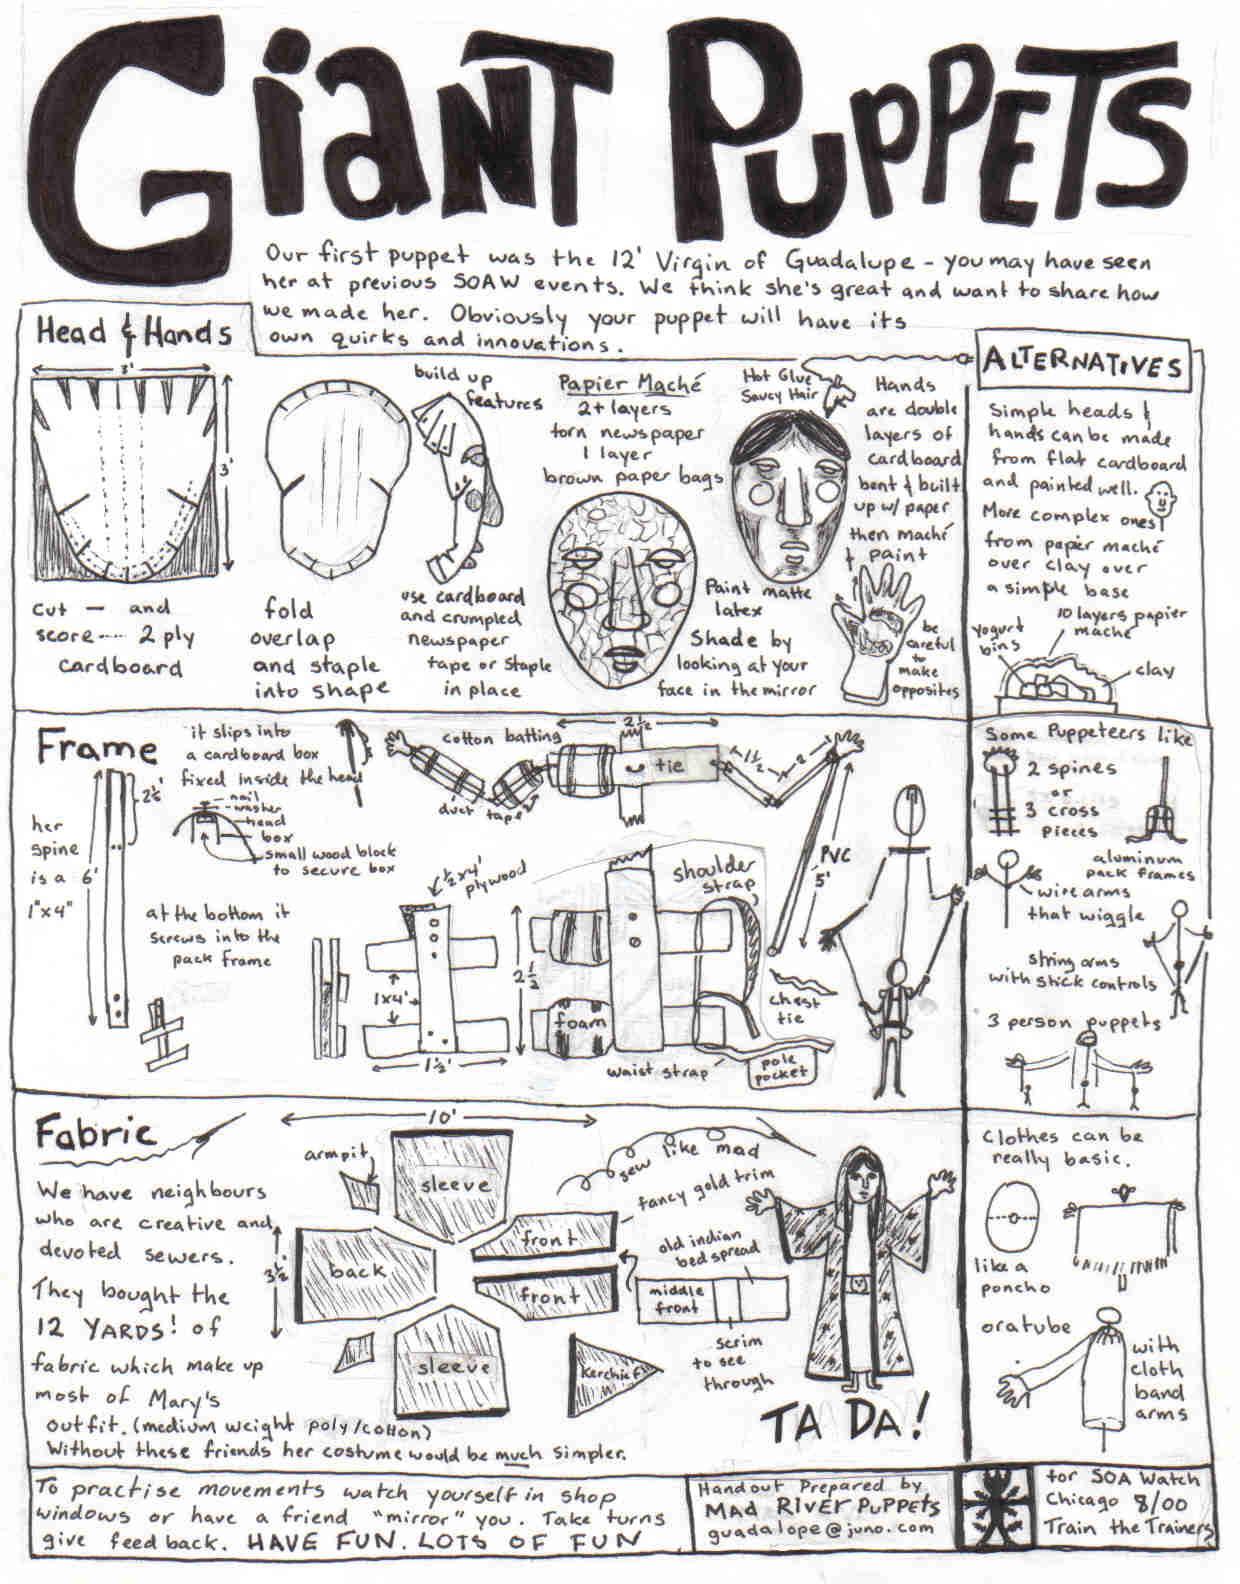 GIANT PUPPETS
Our first puppet was the 12' Virgin of Guadalupe - you may have seen
her at previous SOAW events. We think she's great and want to share how
we made her. Obviously your puppet will have its
own quirks and innovations.
Head & Hands
3'
3'
cut — and
score ---- 2 ply
cardboard
fold
overlap
and staple
into shape
build up
features
use cardboard
and crumpled
newspaper
tape or staple
in place
Papier Maché
2+ layers
torn newspaper
1 layer
brown paper bags
Hot Glue
Saucy Hair
Paint matte
latex
Shade by
looking at your
face in the mirror
Hands
are double
layers of
cardboard
bent & built
up w/ paper
then maché
& paint
be
careful
to
make
opposites
ALTERNATIVES
Simple heads &
hands can be made
from flat cardboard
and painted well.
More complex ones
from paper maché
over clay over
a simple base
10 layers papier
maché
yogurt
bins
clay
Frame
her
spine
is a 6'
1"x4"
2½'
it slips into
a cardboard box
fixed inside the head
nail
washer
head
box
small wood block
to secure box
at the bottom it
screws into the
pack frame
cotton batting
duct tape
2½
tie
1½
2
PVC
5'
½x4'
plywood
1x4'
1½'
2½
foam
shoulder
strap
waist strap
chest
tie
pole
pocket
Some Puppeteers like
2 spines
or
3 cross
pieces
aluminum
pack frames
wire arms
that wiggle
string arms
with stick controls
3 person puppets
Fabric
We have neighbours
who are creative and
devoted sewers.
They bought the
12 YARDS! of
fabric which make up
most of Mary's
outfit. (medium weight poly/cotton)
Without these friends her costume would be much simpler.
10'
3½'
armpit
sleeve
back
front
front
sleeve
Kerchief
sew like mad
fancy gold trim
old indian
bed spread
middle
front
scrim
to see
through
TA DA!
Clothes can be
really basic.
like a
poncho
or a tube
with
cloth
band
arms
To practise movements watch yourself in shop
windows or have a friend "mirror" you. Take turns
give feed back. HAVE FUN. LOTS OF FUN
Handout Prepared by
MAD RIVER PUPPETS
guadalope@juno.com
for SOA Watch
Chicago 8/00
Train the Trainers